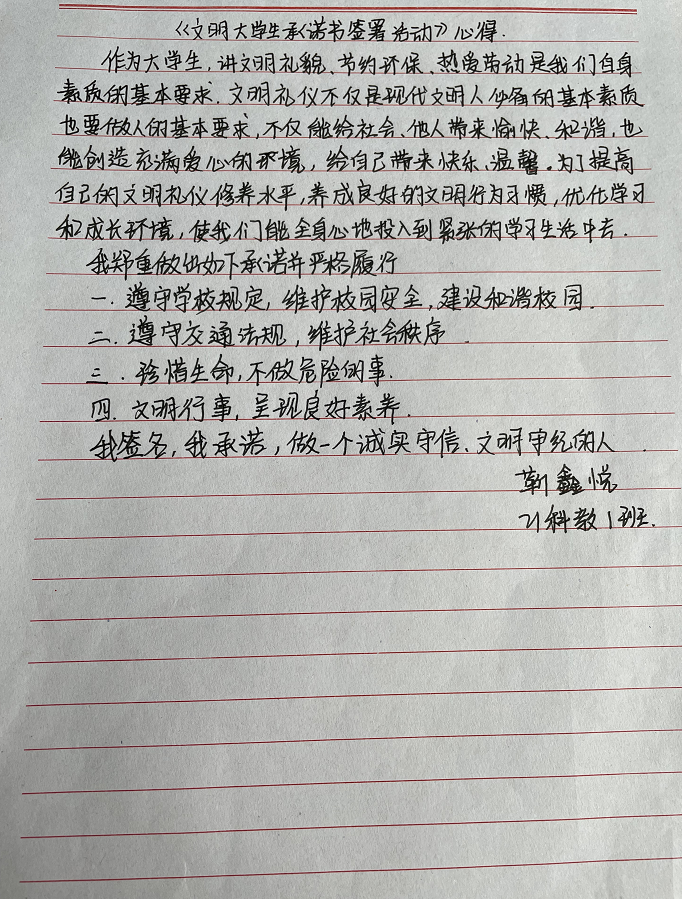 《文明大学生承诺书签署活动》心得.
作为大学生,讲文明礼貌、节约环保、热爱劳动是我们自身
素质的基本要求.文明礼仪不仅是现代文明人必备的基本素质
也要做人的基本要求,不仅能给社会、他人带来愉快、和谐,也
能创造充满爱心的环境,给自己带来快乐、温馨.为了提高
自己的文明礼仪修养水平,养成良好的文明行为习惯,优化学习
和成长环境,使我们能全身心地投入到紧张的学习生活中去.
我郑重做出如下承诺并严格履行
一.遵守学校规定,维护校园安全,建设和谐校园.
二.遵守交通法规,维护社会秩序.
三.珍惜生命,不做危险的事.
四.文明行事,呈现良好素养.
我签名,我承诺,做一个诚实守信、文明守纪的人.
靳鑫悦
21科教1班.